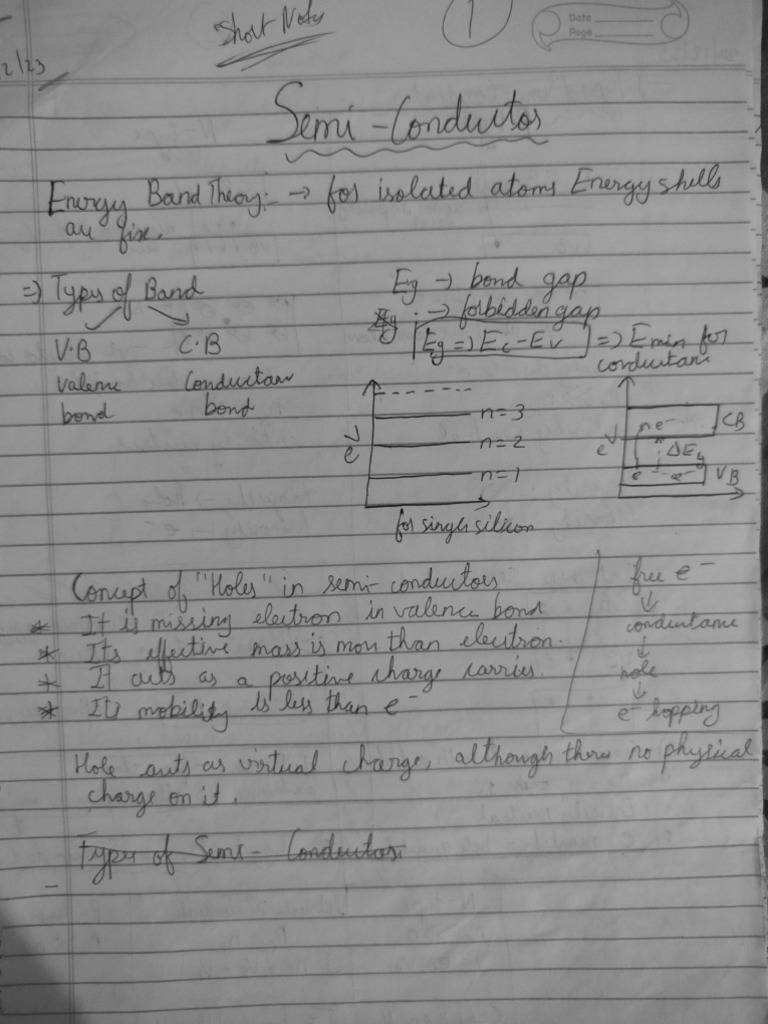 Short Notes
1
Date
Page
2/23
Semi-Conductor
Energy Band Theory :- → for isolated atoms Energy shells
are fix.
⇒ Types of Band
V.B C.B
Valence Conductance
bond bond
Eg → bond gap
Eg → forbidden gap
Eg => Ec - Ev => E min for
conductance
n=3
n=2
n=1
e
for single silicon
CB
n e-
e
ΔEg
e- e-
VB
Concept of "Holes" in semi-conductors
* It is missing electron in valence bond
* Its effective mass is more than electron.
* It acts as a positive charge carrier.
* Its mobility is less than e-
free e-
↓
conductance
↓
hole
↓
e- hopping
Hole acts as virtual charge, although there no physical
charge on it.
Types of Semi-Conductors